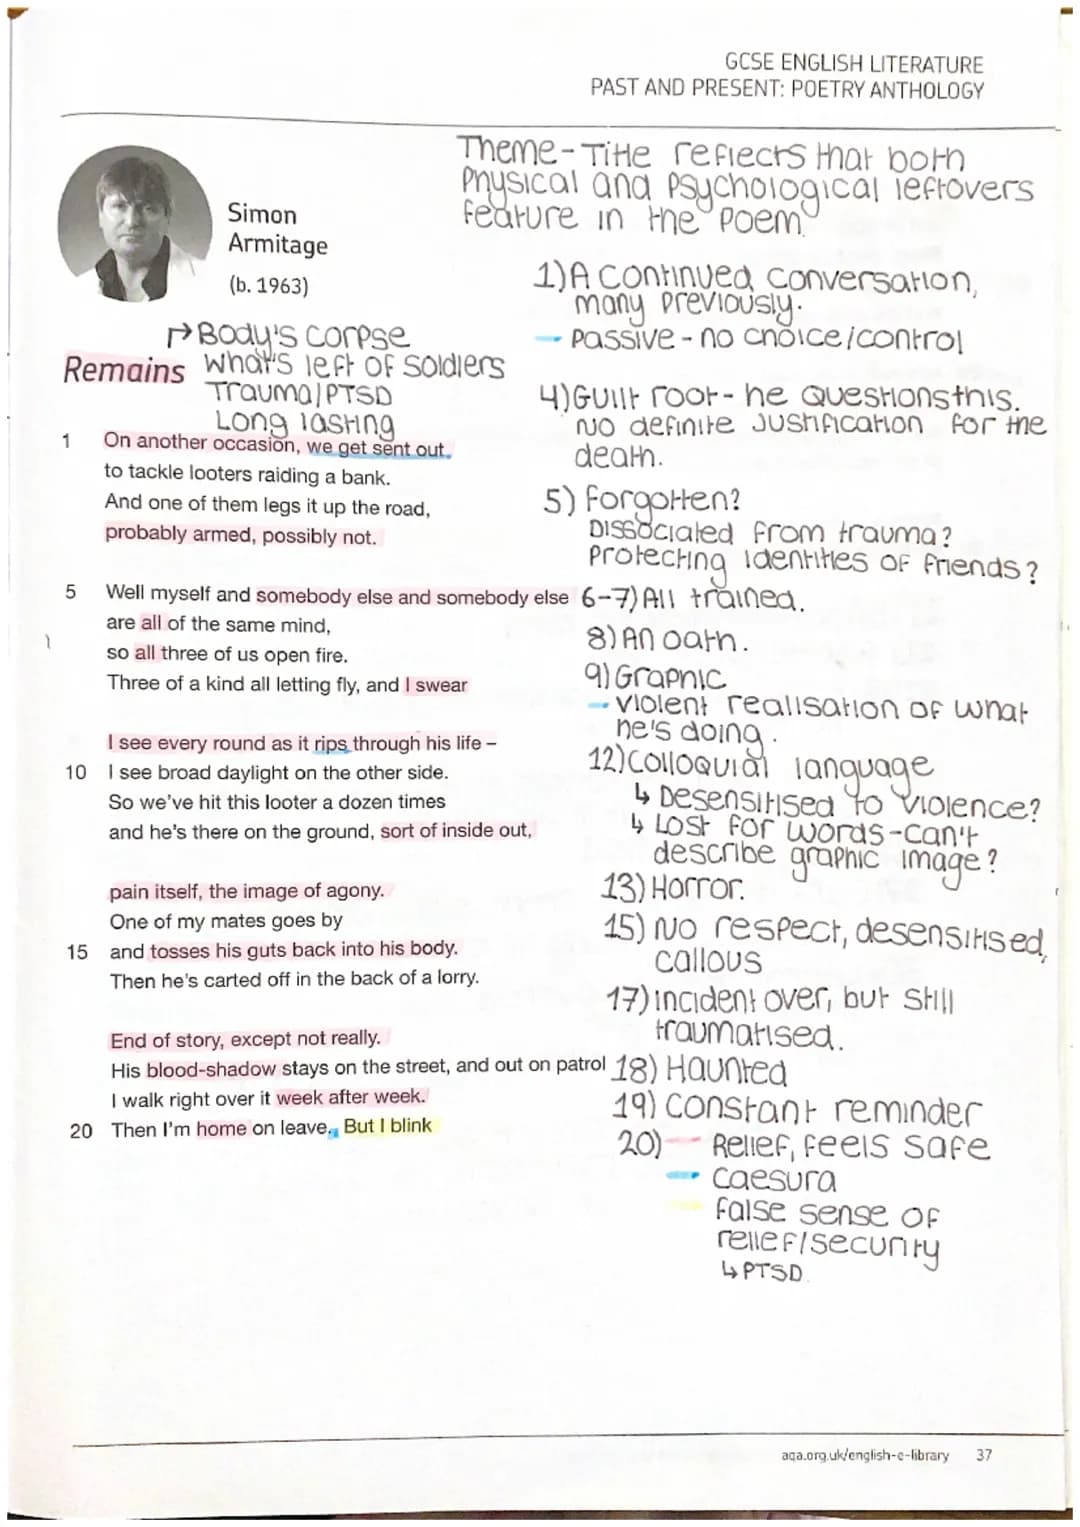 GCSE ENGLISH LITERATURE
PAST AND PRESENT: POETRY ANTHOLOGY
Theme - Title reflects that both
Physical and psychological leftovers
feature in the poem.
Simon
Armitage
(b. 1963)
1) A continued conversation,
many previously.
- Passive - no choice/control
↱ Body's corpse
Remains
What's left of soldiers
Trauma/PTSD
Long lasting
4) Guilt root - he questions this.
No definite justification for the
death.
1 On another occasion, we get sent out
to tackle looters raiding a bank.
And one of them legs it up the road,
probably armed, possibly not.
5) Forgotten?
Dissociated from trauma?
Protecting identities of friends?
5 Well myself and somebody else and somebody else
are all of the same mind,
so all three of us open fire.
Three of a kind all letting fly, and I swear
6-7) All trained.
8) An oath.
9) Graphic
- violent realisation of what
he's doing.
I see every round as it rips through his life –
10 I see broad daylight on the other side.
So we've hit this looter a dozen times
and he's there on the ground, sort of inside out,
12) Colloquial language
↳ Desensitised to violence?
↳ Lost for words - can't
describe graphic image?
pain itself, the image of agony.
One of my mates goes by
15 and tosses his guts back into his body.
Then he's carted off in the back of a lorry.
13) Horror.
15) No respect, desensitised,
callous
17) incident over, but still
traumatised.
End of story, except not really.
His blood-shadow stays on the street, and out on patrol
I walk right over it week after week.
20 Then I'm home on leave. But I blink
18) Haunted
19) Constant reminder
20) - Relief, feels safe
- Caesura
- False sense of
relief/security
↳ PTSD
aqa.org.uk/english-e-library 37